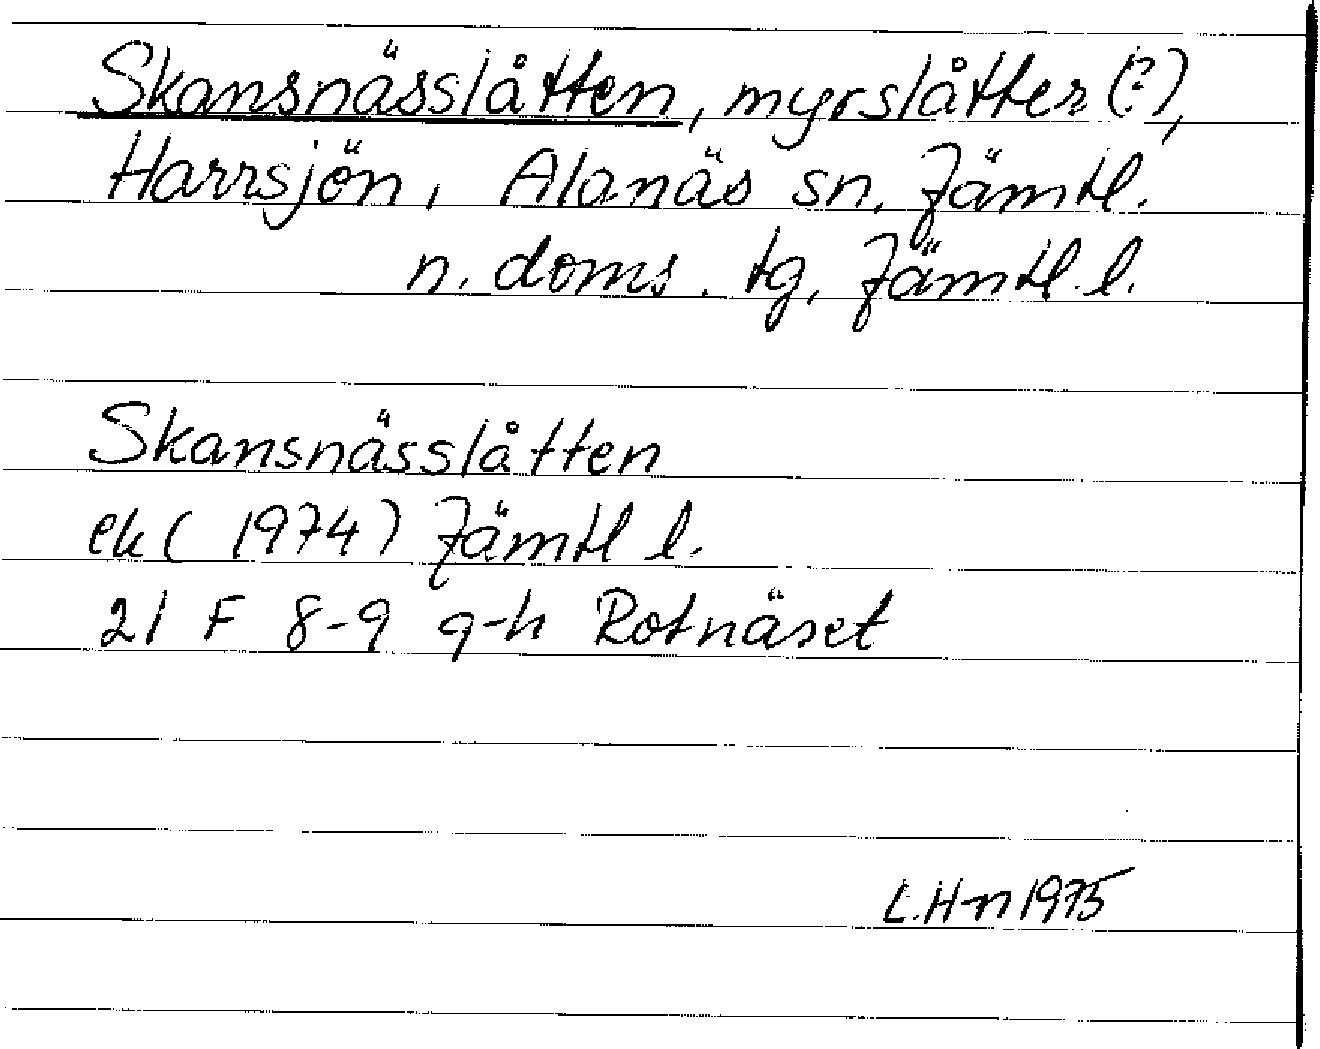 Skansnässlåtten, myrslåtter (?),
Harrsjön, Alanäs sn. Jämtl.
n. doms. tg, Jämtl. l.
Skansnässlåtten
ek ( 1974) Jämtl l.
21 F 8-9 g-h Rotnäset
L.H-n 1975